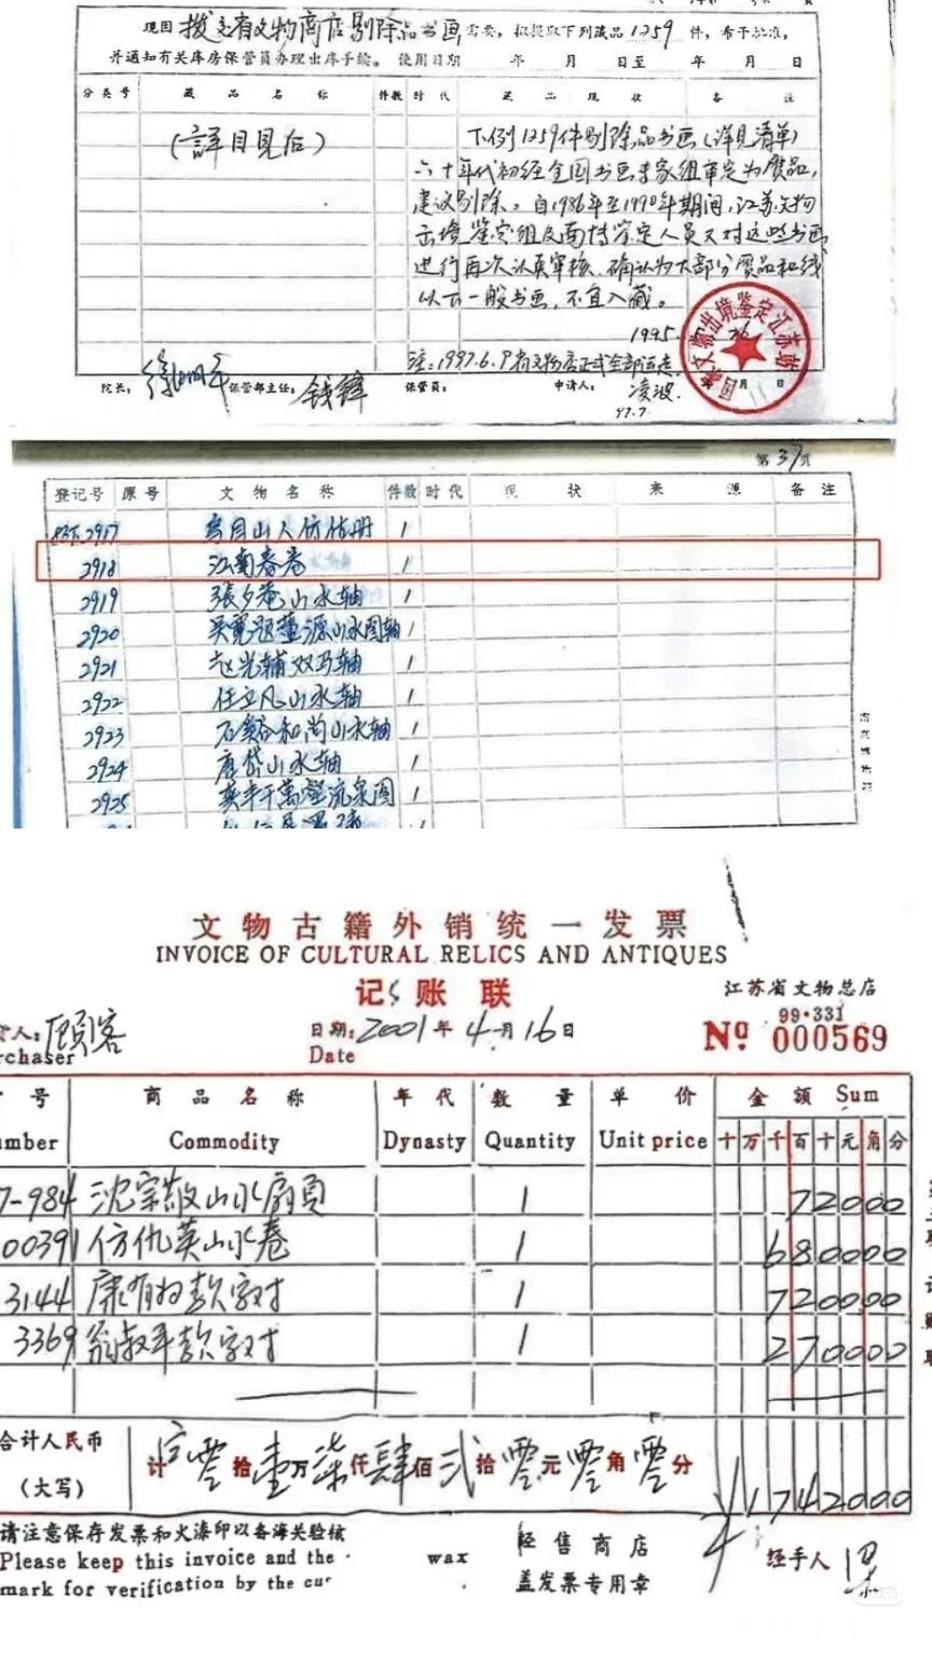 现因 拨交省文物商店剔除品书画 需要，拟提取下列藏品 1259 件，希予批准，
并通知有关库房保管员办理出库手续。 使用日期 年 月 日至 年 月 日
分类号 藏品名称 件数 时代 藏品现状 备注
(詳目見后)
下例1259件剔除品书画(详见清单)
六十年代初经全国书画专家组审定为赝品，
建议剔除。自1986年至1990年期间，江苏文物
出境鉴定组及南博鉴定人员又对这些书画
进行再次认真审核，确认为大部分赝品和线
以下一般书画，不宜入藏。
1995.
注：1997.6.9有文物店正式全部运走
院长： 保管部主任： 钱锋 保管员： 申请人： 凌波.
97.7
月 日
第 37 页
登记号 原号 文物名称 件数 时代 现状 来源 备注
2917 1
2918 江南春卷 1
2919 張夕庵山水轴 1
2920 吴寬题董源山水图轴 1
2921 赵光辅双马轴 1
2922 任立凡山水轴 1
2923 石溪和尚山水轴 1
2924 唐岱山水轴 1
2925 龚半千萬壑流泉图 1
文物古籍外销统一发票
INVOICE OF CULTURAL RELICS AND ANTIQUES
记账联
江苏省文物总店
人： 顾客
rchaser
日期： 2001 年 4 月 16 日
Date
99·331
Nº 000569
号 商品名称 年代 数量 单价 金额 Sum
umber Commodity Dynasty Quantity Unit price 十万千百十元角分
7-984 沈宗敬山水扇頁 1 72000
00391 仿仇英山水卷 1 680000
3144 康有为款字对 1 720000
3369 翁叔平款字对 1 270000
合计人民币
（大写）
计 零 拾 壹 万 柒 仟 肆 佰 贰 拾 零 元 零 角 零 分
¥1742000
请注意保存发票和火漆印以备海关验核
Please keep this invoice and the wax
mark for verification by the cus
经售商店
盖发票专用章
经手人